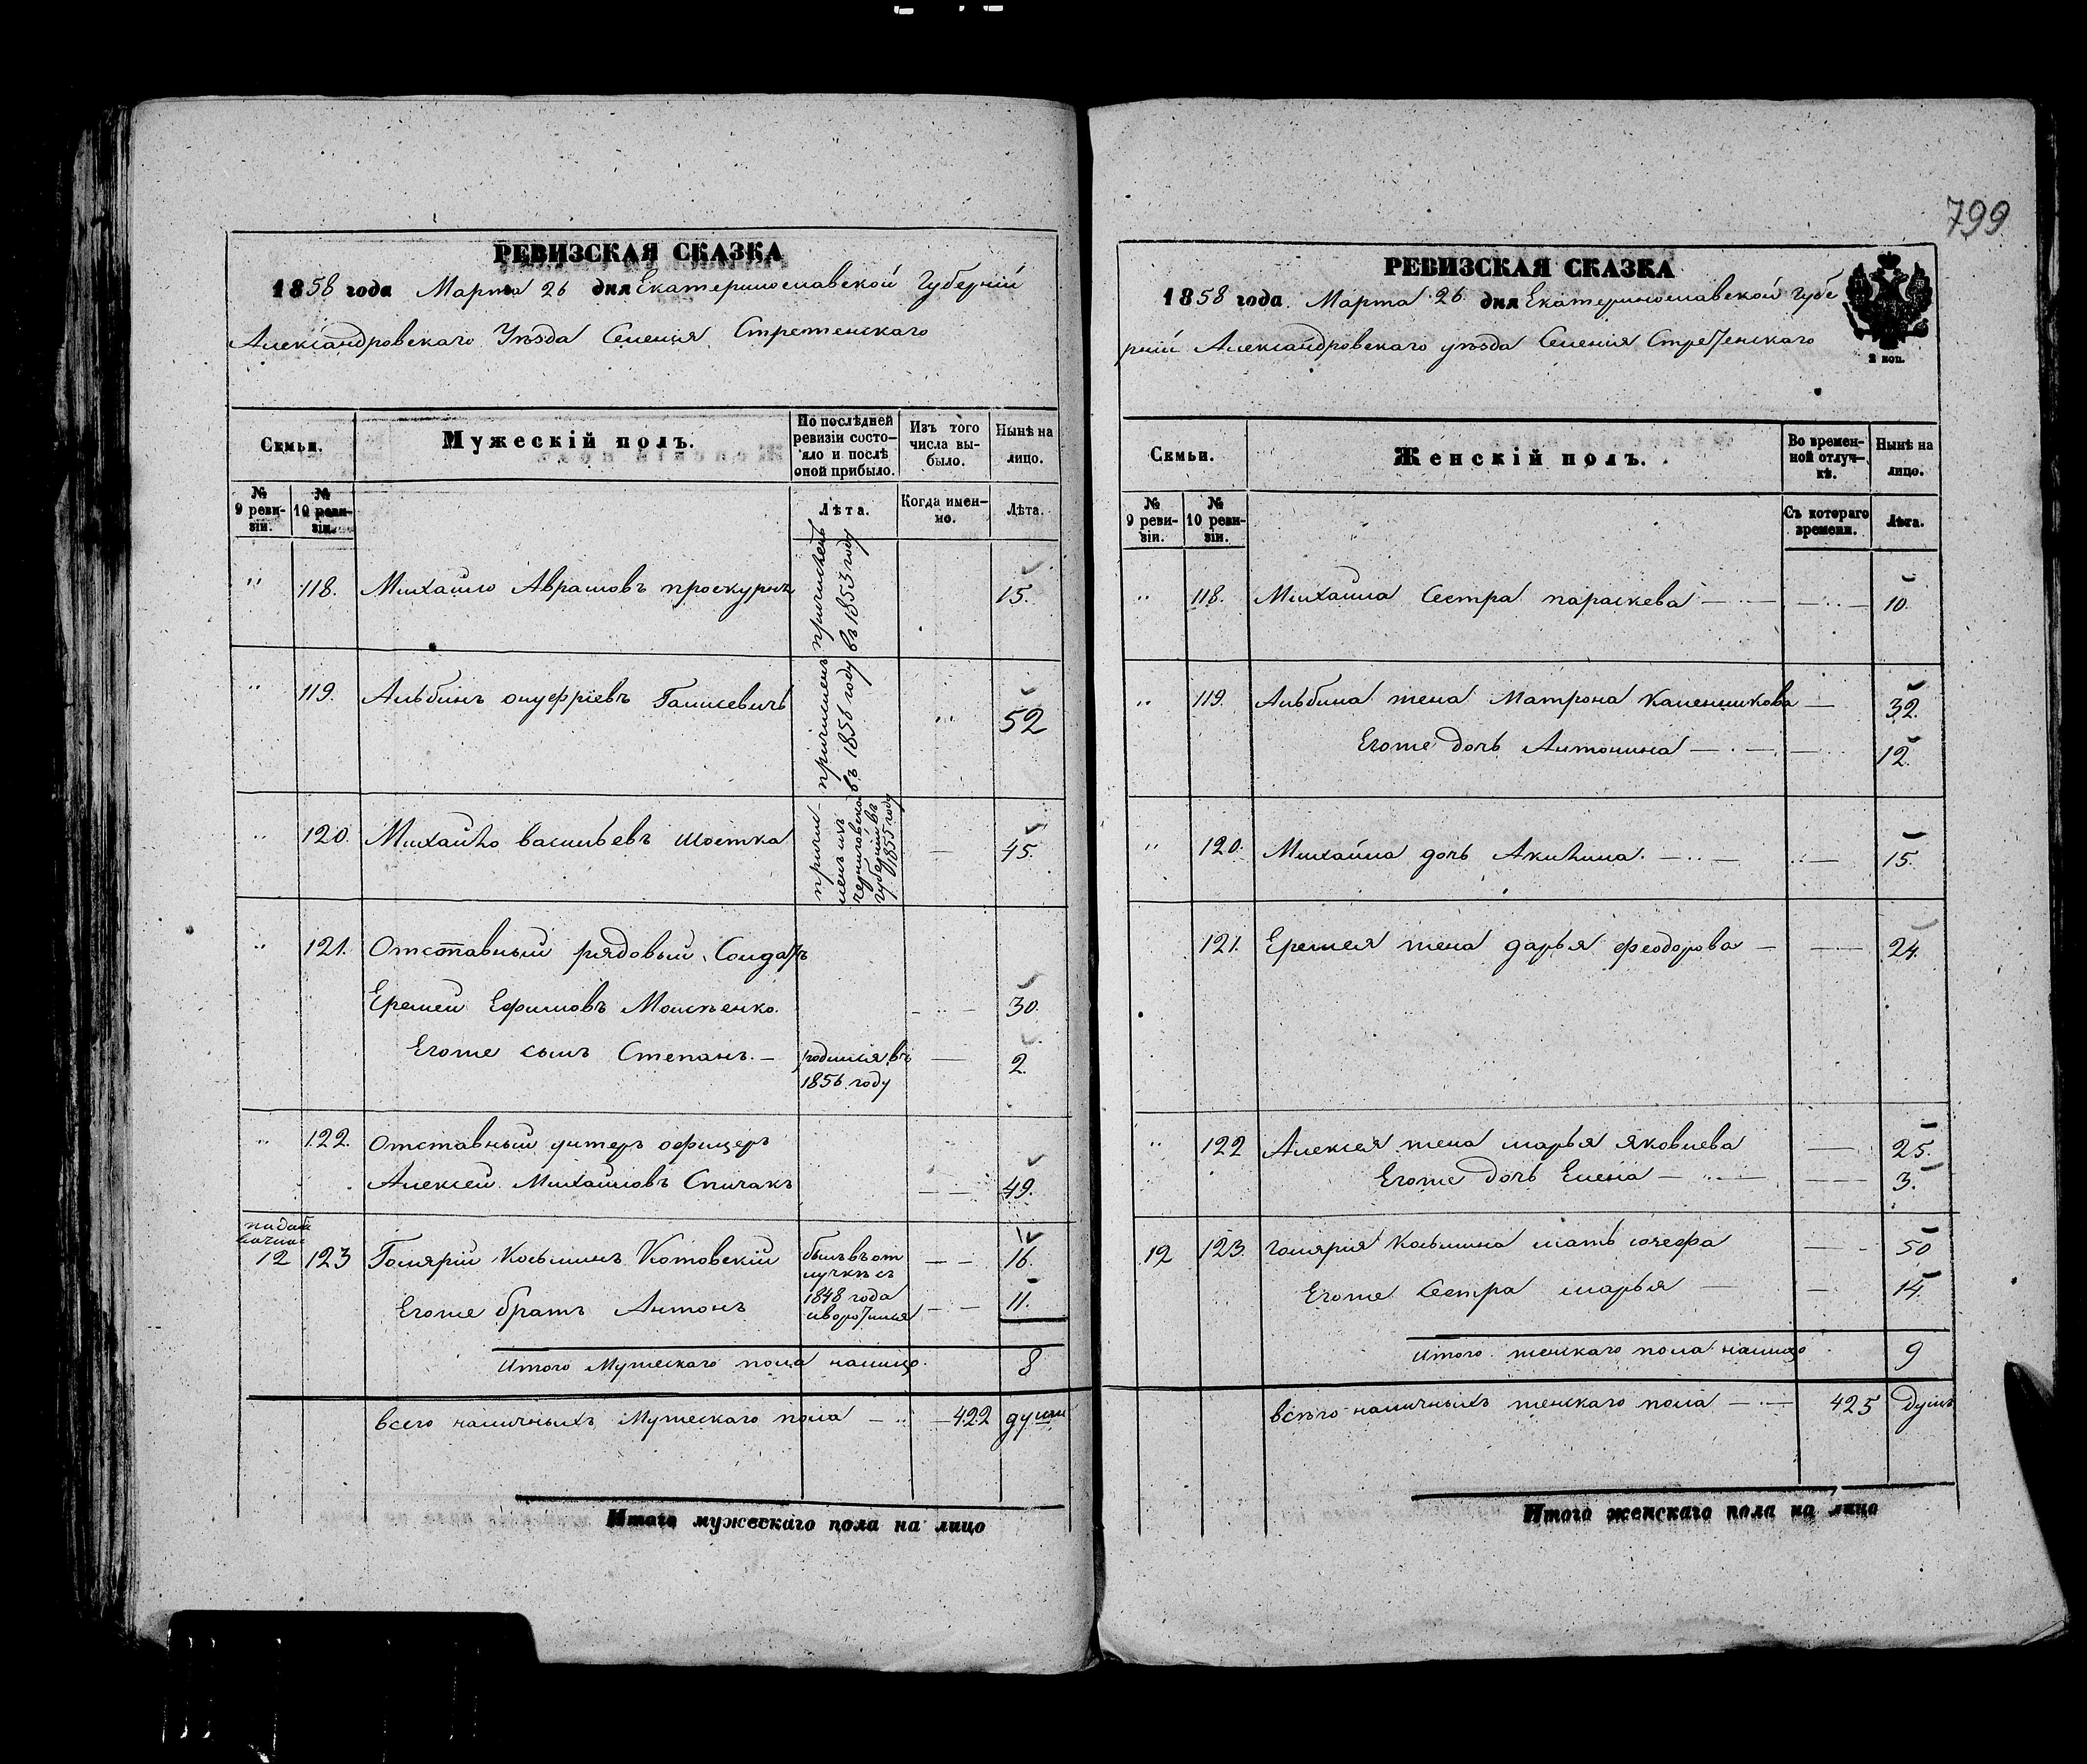 РЕВИЗСКАЯ СКАЗКА
1858 года Марта 26 дня Екатеринославской Губерніи
Александровскаго Уѣзда Селенія Стретенскаго
Семьи.
Мужескій полъ.
По послѣдней ревизіи состояло и послѣ оной прибыло.
Изъ того числа выбыло.
Нынѣ на лицо.
№ 9 ревизіи.
№ 10 ревизіи.
Лѣта.
Когда именно.
Лѣта.
" 118. Михайло Аврамовъ проскурнѣ причисленъ въ 1853 году 15.
" 119. Альбинъ онуфріевъ Галишевичъ причисленъ въ 1856 году " 52
" 120. Михайло васильевъ шостка — 45.
причисленъ изъ
черниговской
губерніи въ
1855 году
" 121. Отставный рядовый Солдатъ
Еремей Ефимовъ Моисѣенко. — 30.
Егоже сынъ Степанъ. — родился въ — 2.
1856 году
" 122. Отставный унтеръ офицеръ
Алексей Михайловъ Спичакъ — — 49.
12 123 Голярій Косьминъ Котовскій былъ въ от — — 16.
лучкѣ съ
1848 года
Егоже братъ Антонъ иворотился — — 11.
Итого Мужескаго пола налицо. 8
всего наличныхъ Мужескаго пола — 422 души
Итого мужескаго пола на лицо
799
РЕВИЗСКАЯ СКАЗКА
1858 года Марта 26 дня Екатеринославской Губе
рніи Александровскаго уѣзда Селенія Стретенскаго
2 коп.
Семьи.
Женскій полъ.
Во временной отлучкѣ.
Нынѣ на лицо.
№ 9 ревизіи.
№ 10 ревизіи.
Съ котораго времени.
Лѣта.
" 118. Михайла Сестра параскева — 10.
" 119. Альбина жена Матрона Каленникова — 32.
Егоже дочь Антонина — 12.
" 120. Михайла дочь Акилина. — 15.
121. Еремея жена дарья феодорова — 24.
" 122 Алексея жена марья яковлева — 25.
Егоже дочь Елена — 3.
12 123. голярія Косьмина мать іозефа — 50
Егоже Сестра марья — 14.
Итого женскаго пола налицо 9
всѣго наличныхъ женскаго пола — 425 Душъ
Итого женскаго пола на лицо